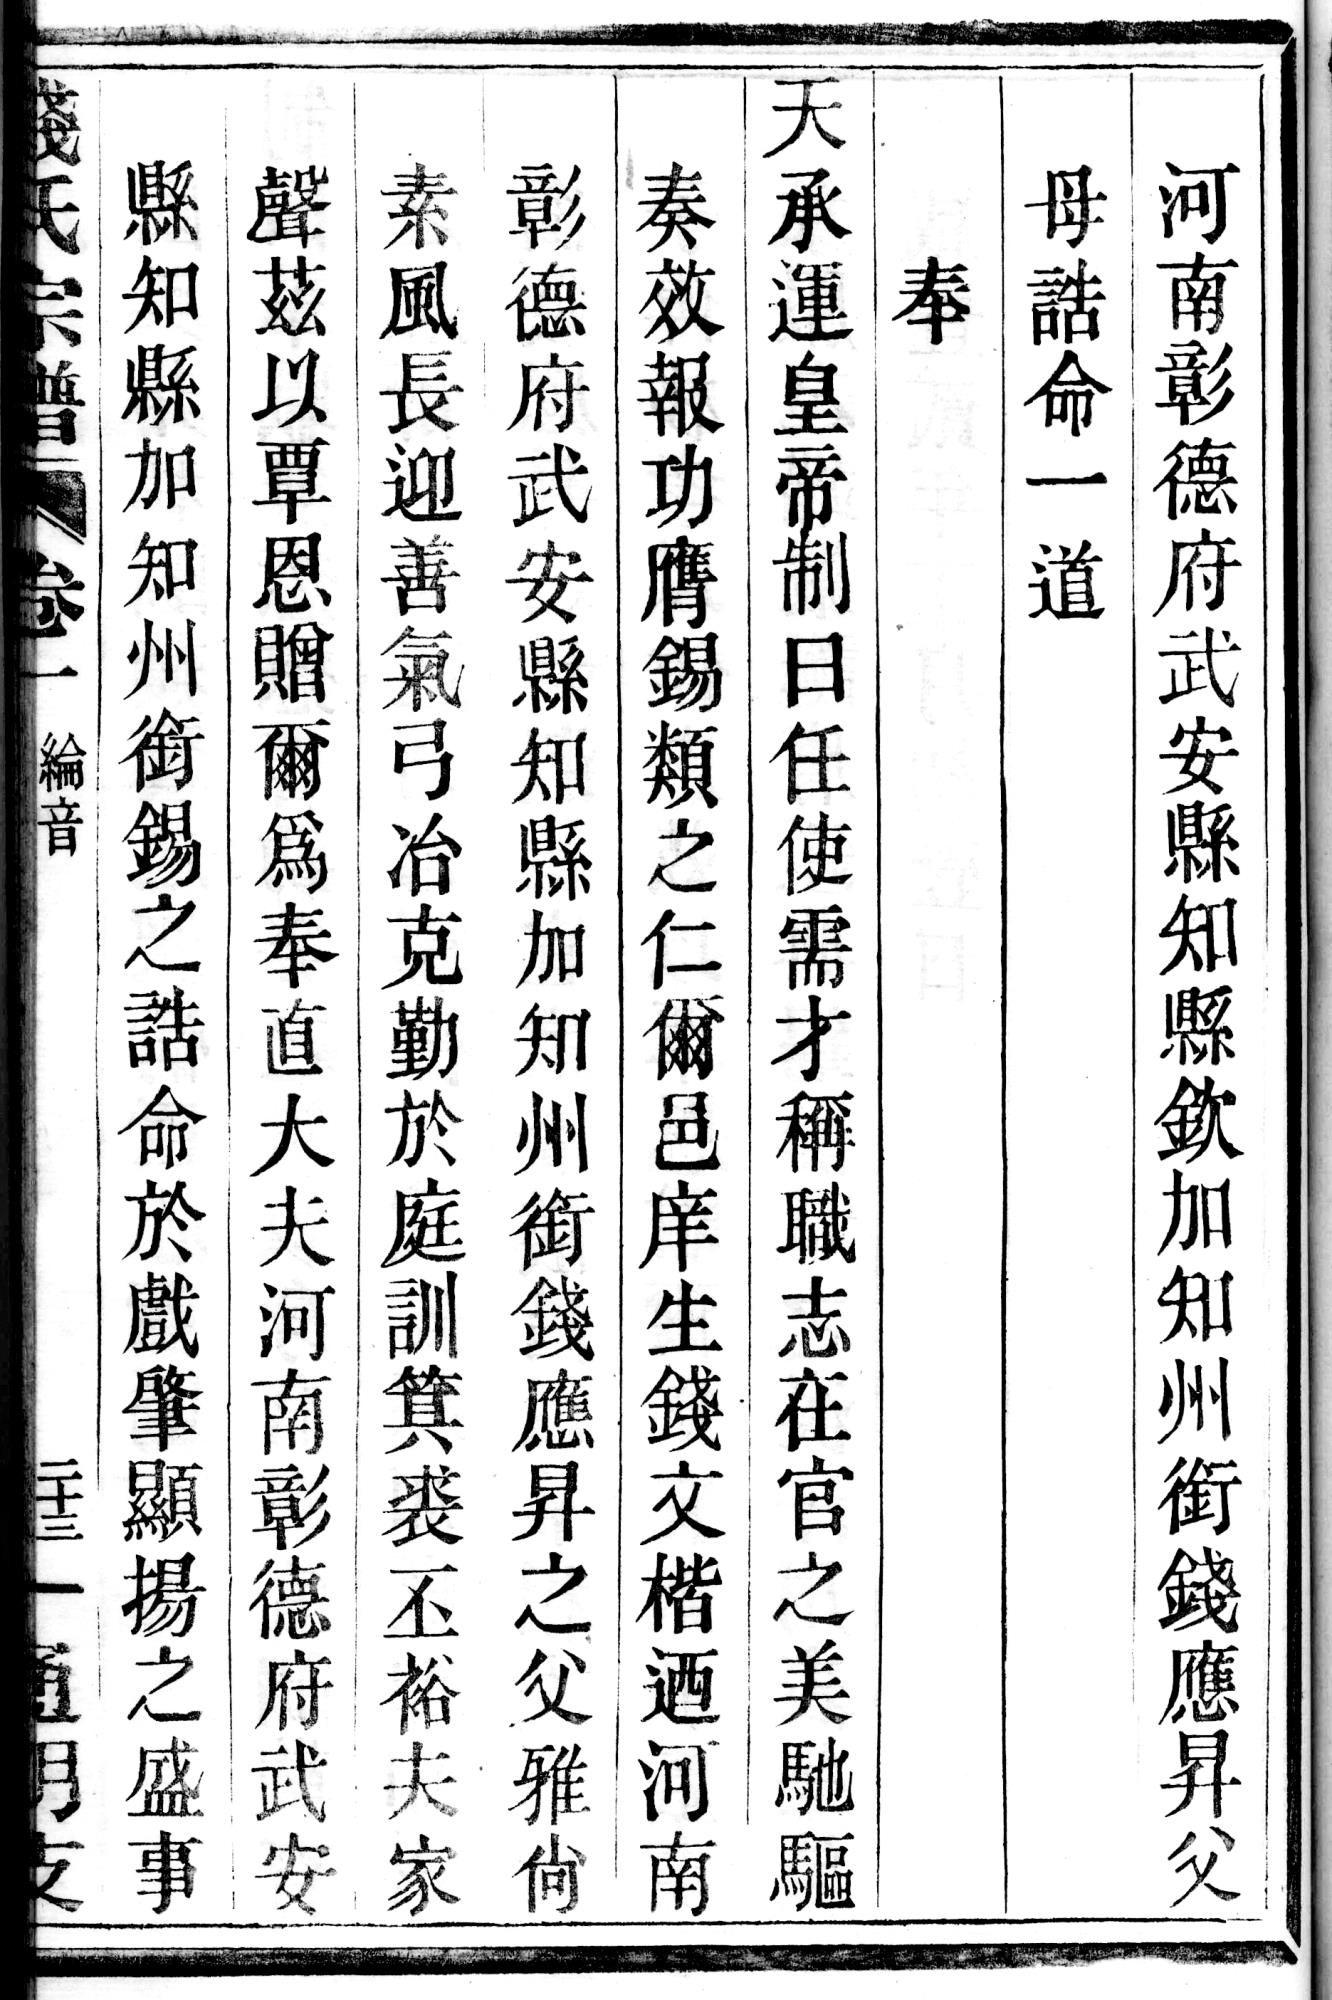 河南彰德府武安縣知縣欽加知州銜錢應昇父
母誥命一道
奉
天承運皇帝制曰任使需才稱職志在官之美馳驅
奏效報功膺錫類之仁爾邑庠生錢文楷迺河南
彰德府武安縣知縣加知州銜錢應昇之父雅尙
素風長迎善氣弓冶克勤於庭訓箕裘丕裕夫家
聲茲以覃恩贈爾爲奉直大夫河南彰德府武安
縣知縣加知州銜錫之誥命於戲肇顯揚之盛事
錢氏宗譜 卷一 綸音 二十三 一 通明支